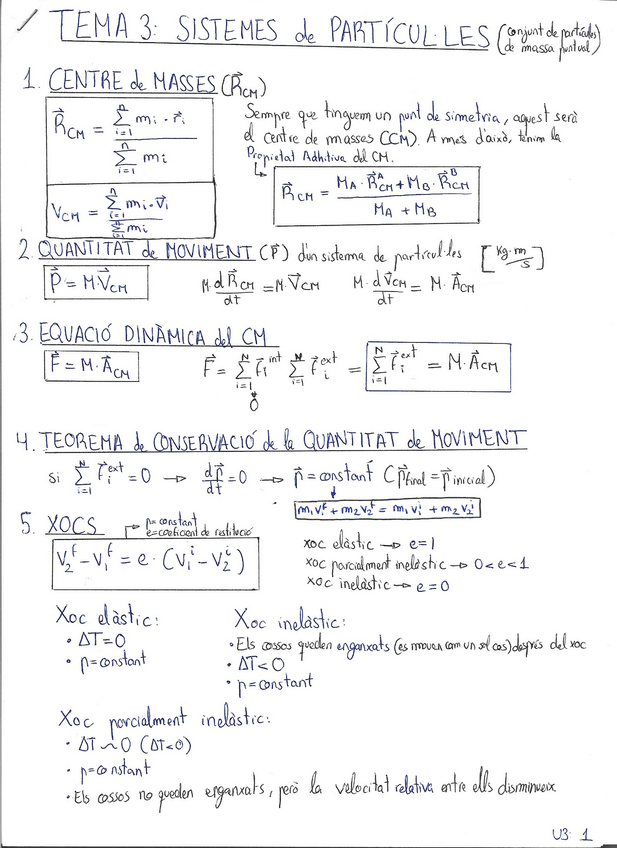 TEMA 3: SISTEMES de PARTÍCUL·LES (conjunt de partícules de massa puntual)
1. CENTRE de MASSES (R⃗CM)
R⃗CM = Σ(i=1→n) mi · r⃗i / Σ(i=1→n) mi
Sempre que tinguem un punt de simetria, aquest serà
el centre de masses (CCM). A més d'això, tenim la
Propietat Adhitiva del CM.
↳ R⃗CM = (MA · R⃗CM^A + MB · R⃗CM^B) / (MA + MB)
VCM = Σ(i=1→n) mi · v⃗i / Σ(i=1→n) mi
2. QUANTITAT de MOVIMENT (P⃗) d'un sistema de partícul·les [kg·m/s]
P⃗ = M·V⃗CM
M·dR⃗CM/dt = M·V⃗CM
M·dV⃗CM/dt = M·A⃗CM
3. EQUACIÓ DINÀMICA del CM
F⃗ = M·A⃗CM
F⃗ = Σ(i=1→N) F⃗i^int Σ(i=1→N) F⃗i^ext = Σ(i=1→N) F⃗i^ext = M·A⃗CM
↓
0
4. TEOREMA de CONSERVACIÓ de la QUANTITAT de MOVIMENT
si Σ(i=1→N) F⃗i^ext = 0 → dp⃗/dt = 0 → p⃗ = constant (p⃗final = p⃗inicial)
↓
m1v1^f + m2v2^f = m1v1^i + m2v2^i
5. XOCS
→ p = constant
e = coeficient de restitució
V2^f − V1^f = e · (V1^i − V2^i)
xoc elàstic → e = 1
xoc parcialment inelàstic → 0 < e < 1
xoc inelàstic → e = 0
Xoc elàstic:
• ΔT = 0
• p = constant
Xoc inelàstic:
• Els cossos queden enganxats (es mouen com un sol cos) després del xoc
• ΔT < 0
• p = constant
Xoc parcialment inelàstic:
• ΔT ~ 0 (ΔT < 0)
• p = constant
• Els cossos no queden enganxats, però la velocitat relativa entre ells disminueix
U3: 1